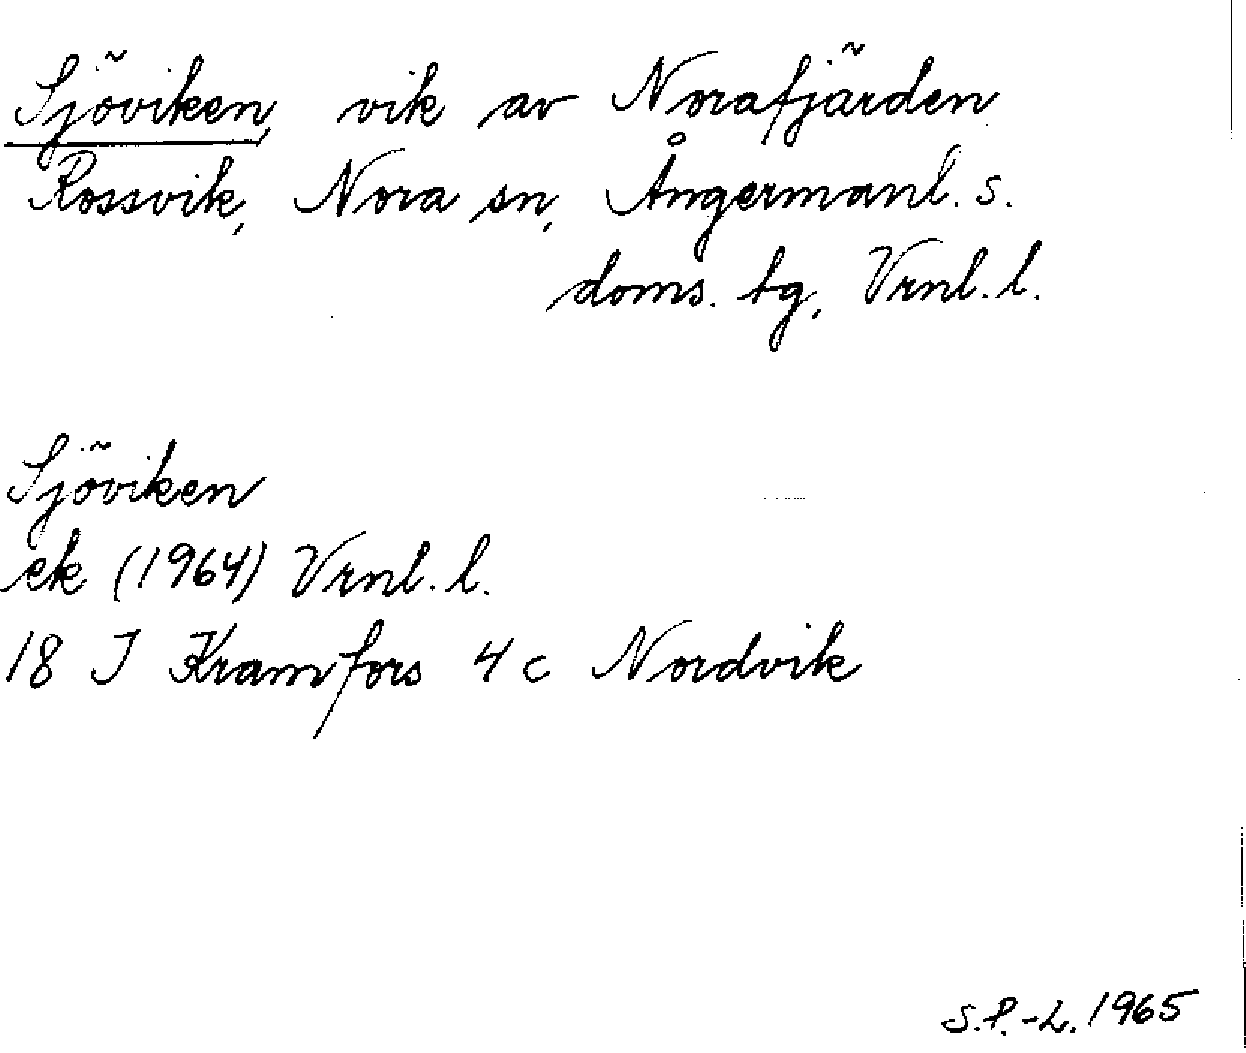 Sjöviken, vik av Norafjärden
Rossvik, Nora sn, Ångermanl. s.
doms. tg, Vrnl. l.
Sjöviken
ek (1964) Vrnl. l.
18 I Kramfors 4 c Nordvik
S.P.-L. 1965